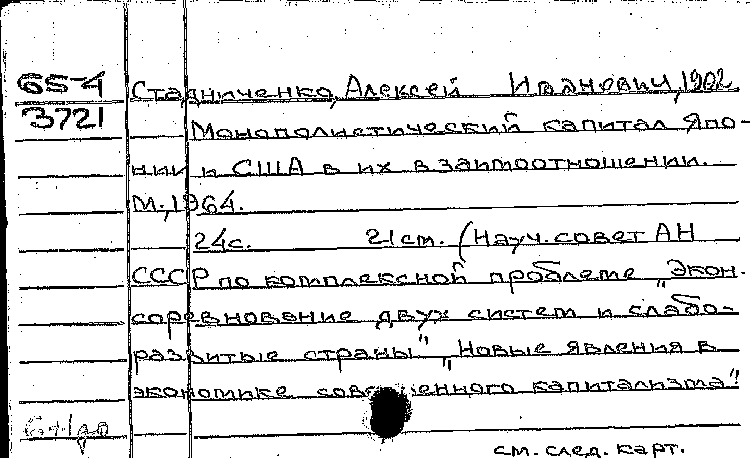 65-4
3721
Стадниченко, Алексей Иванович, 1902
Монополистический капитал Япо-
нии и США в их взаимоотношении.
М., 1964.
24с. 21см. (Науч. совет АН
СССР по комплексной проблеме „Экон.
соревнование двух систем и слабо-
развитые страны" „Новые явления в
экономике современного капитализма".
см. след. карт.